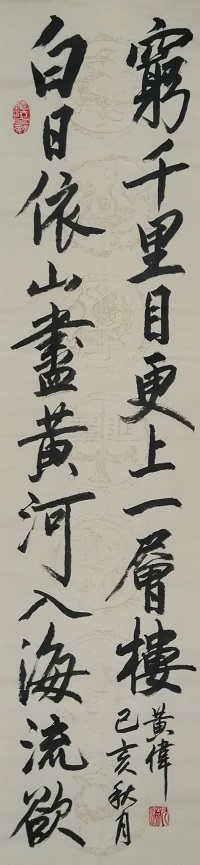 白日依山盡黃河入海流欲
窮千里目更上一層樓
己亥秋月
黃偉